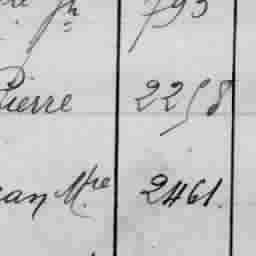 Jh 793
Pierre 2258
ean Mre 2461.